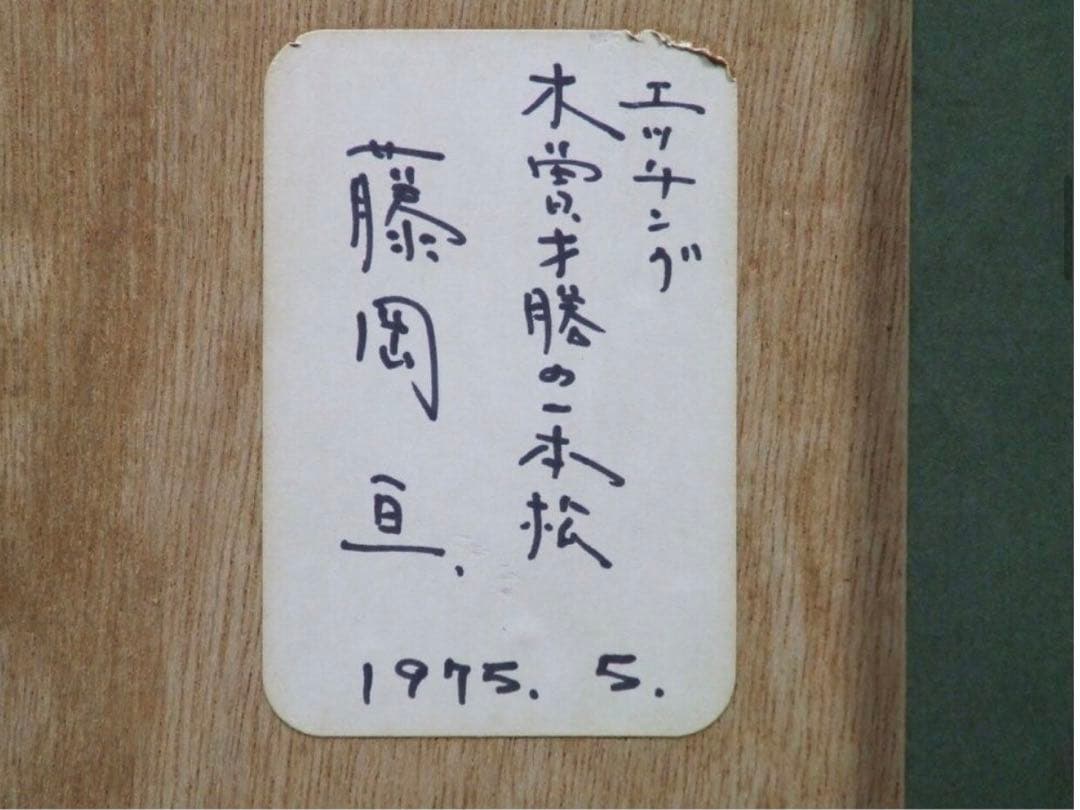 エッチング
木賞才勝の一本松
藤岡 亘.
1975. 5.